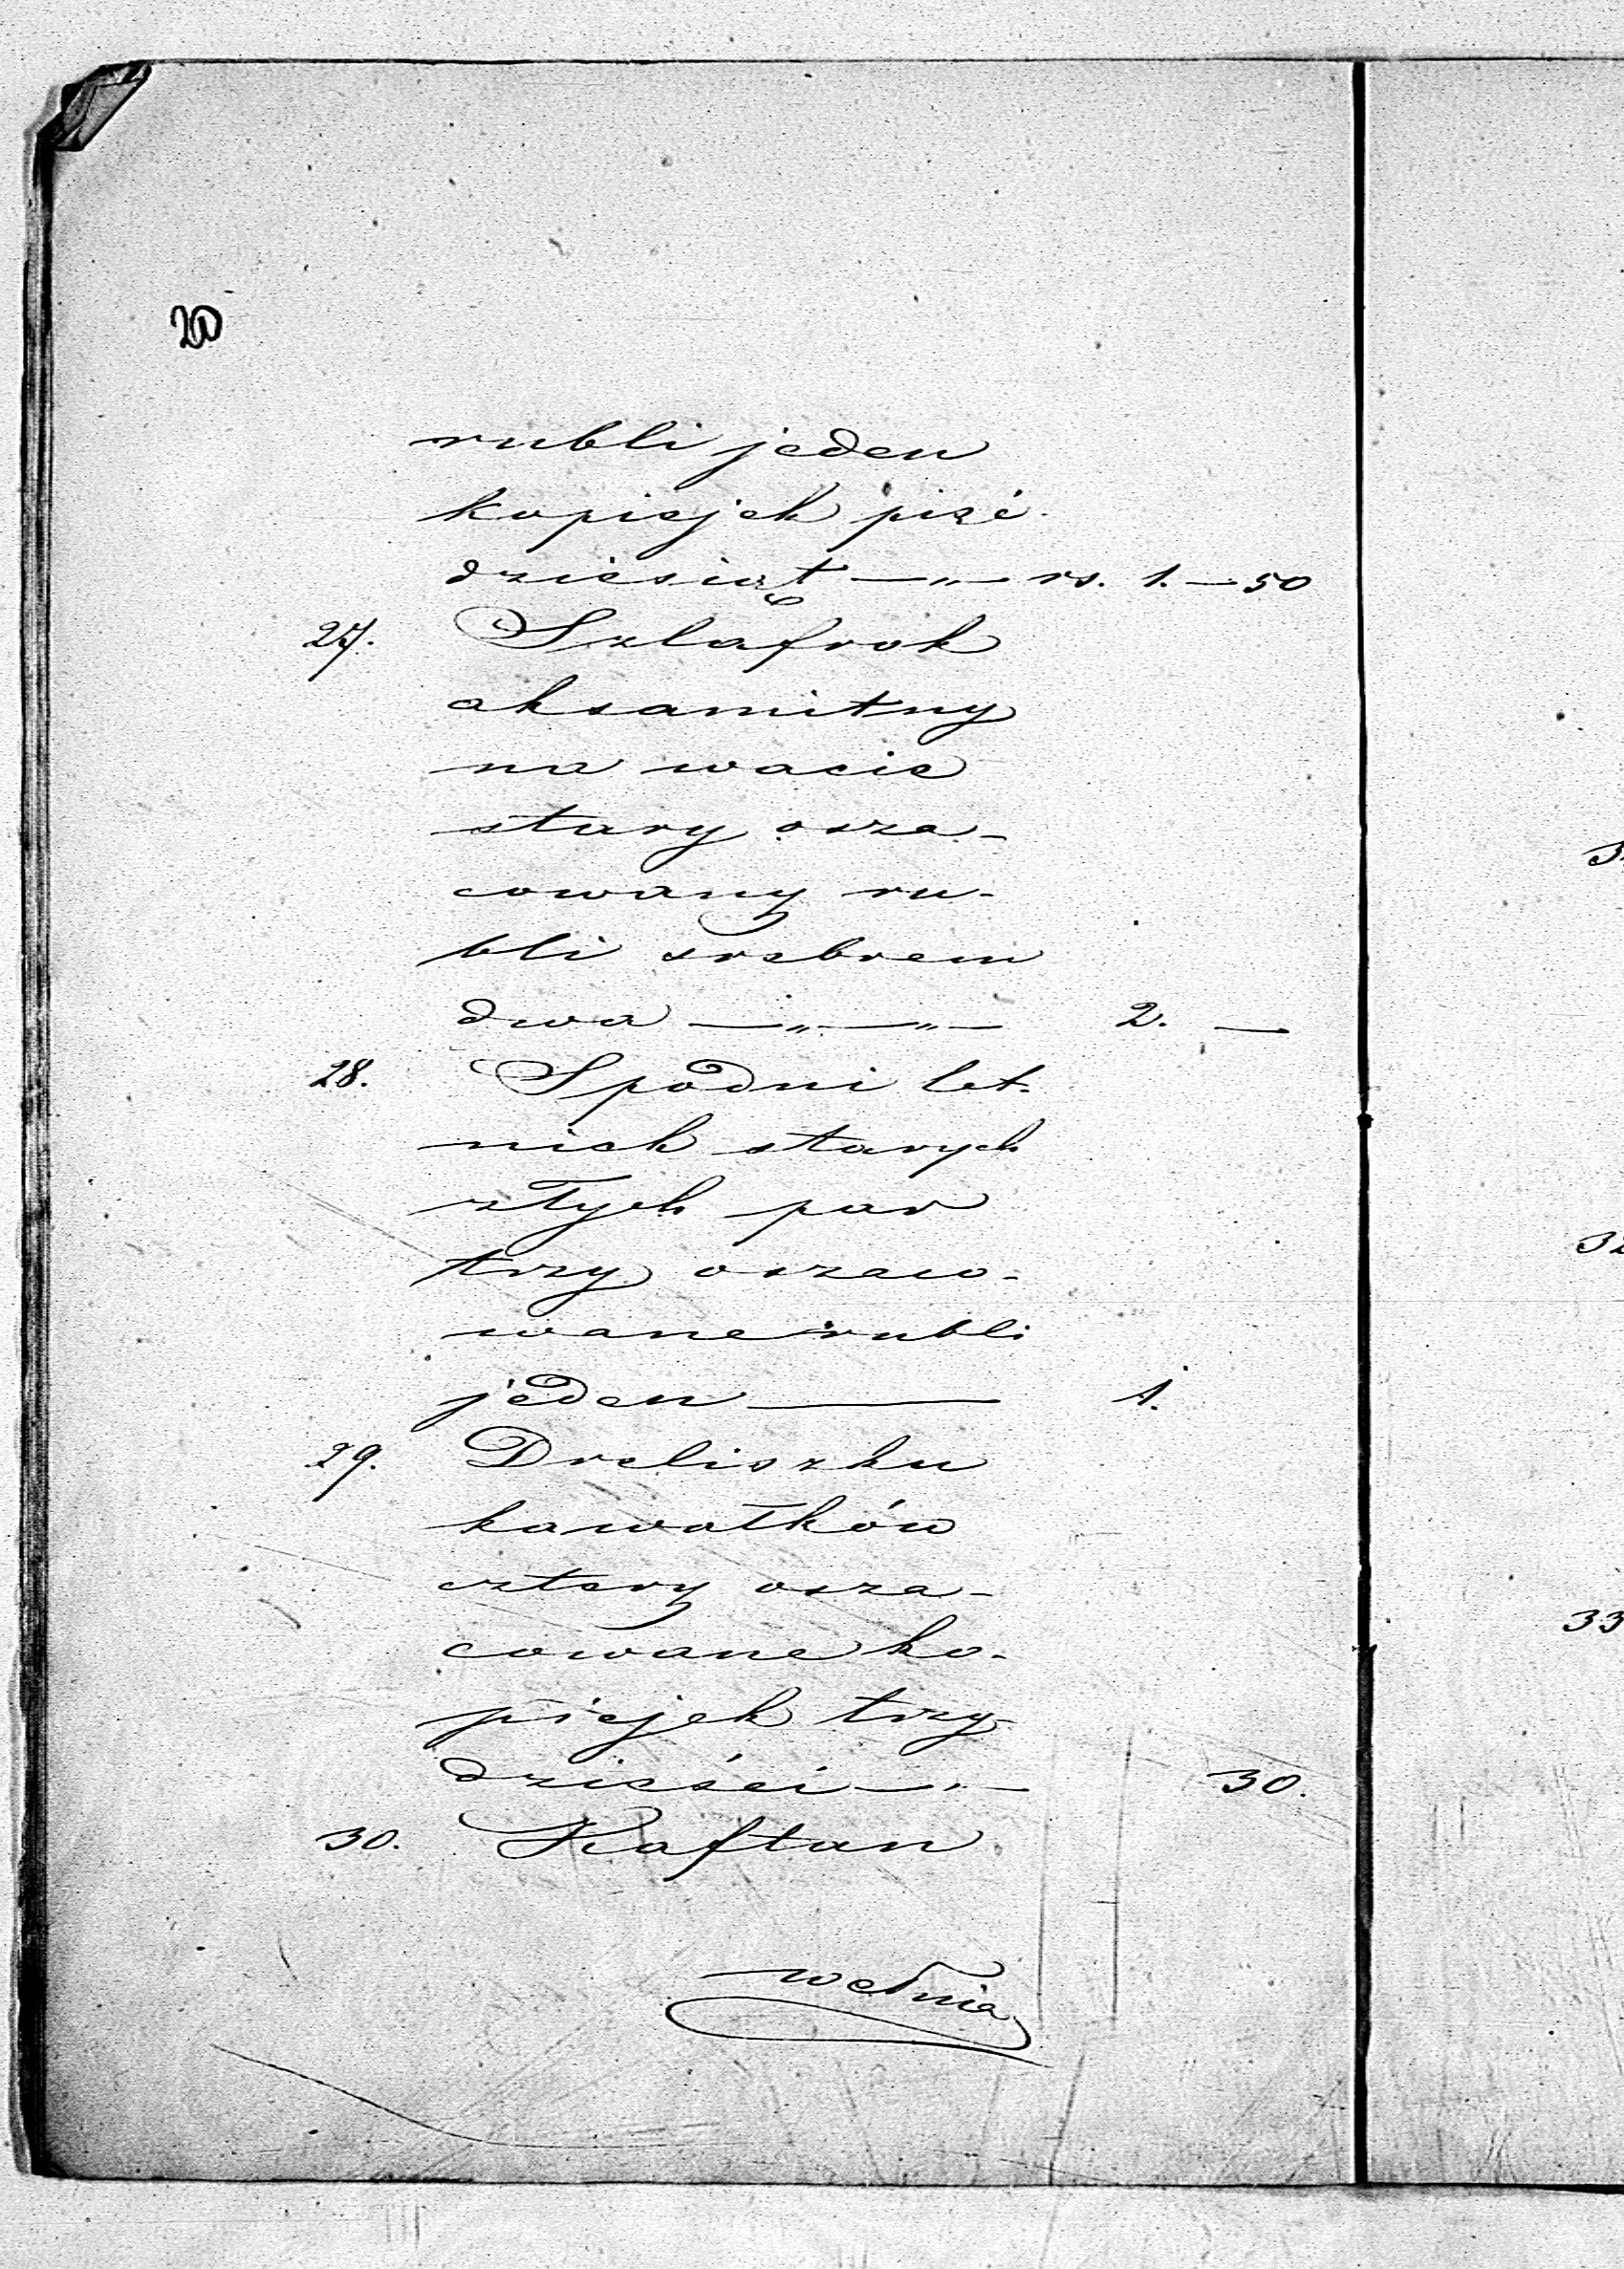 20
rubli jeden
kopiejek pięć-
dziesiąt —„— rs. 1. — 50
27. Szlafrok
aksamitny
na wacie
stary osza-
cowany ru-
bli srebrem
dwa —„—„— 2. —
28. Spodni let-
nich starych
złych par
trzy oszaco-
wane rubli
jeden — 1.
29. Dreliszku
kawałków
cztery osza-
cowane ko-
piejek trzy-
dzieści —„— 30.
30. Kaftan
wełnia
32
33